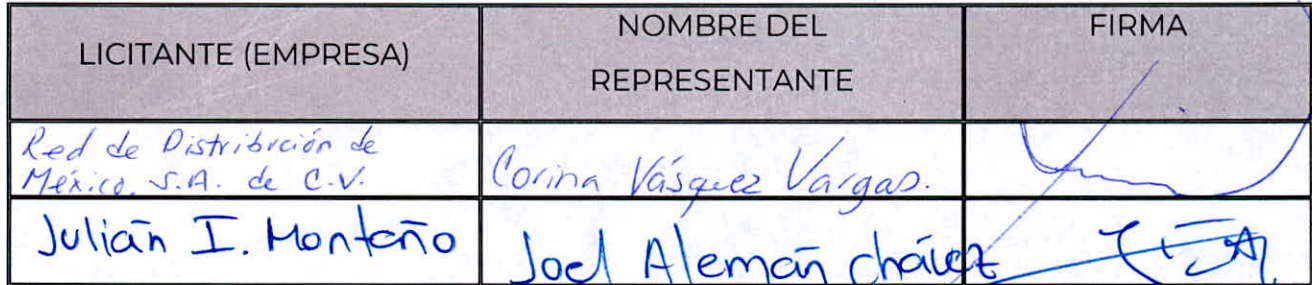 LICITANTE (EMPRESA)
NOMBRE DEL
REPRESENTANTE
FIRMA
Red de Distribución de
México, S.A. de C.V.
Corina Vásquez Vargas.
Julián I. Montaño
Joel Alemán cháuez